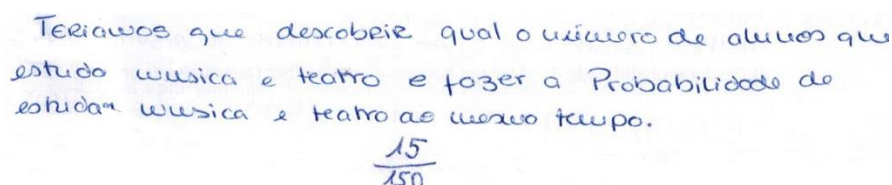 Teriamos que descobrir qual o número de alunos que
estuda musica e teatro e fazer a Probabilidade de
estudar musica e teatro ao mesmo tempo.
15
150